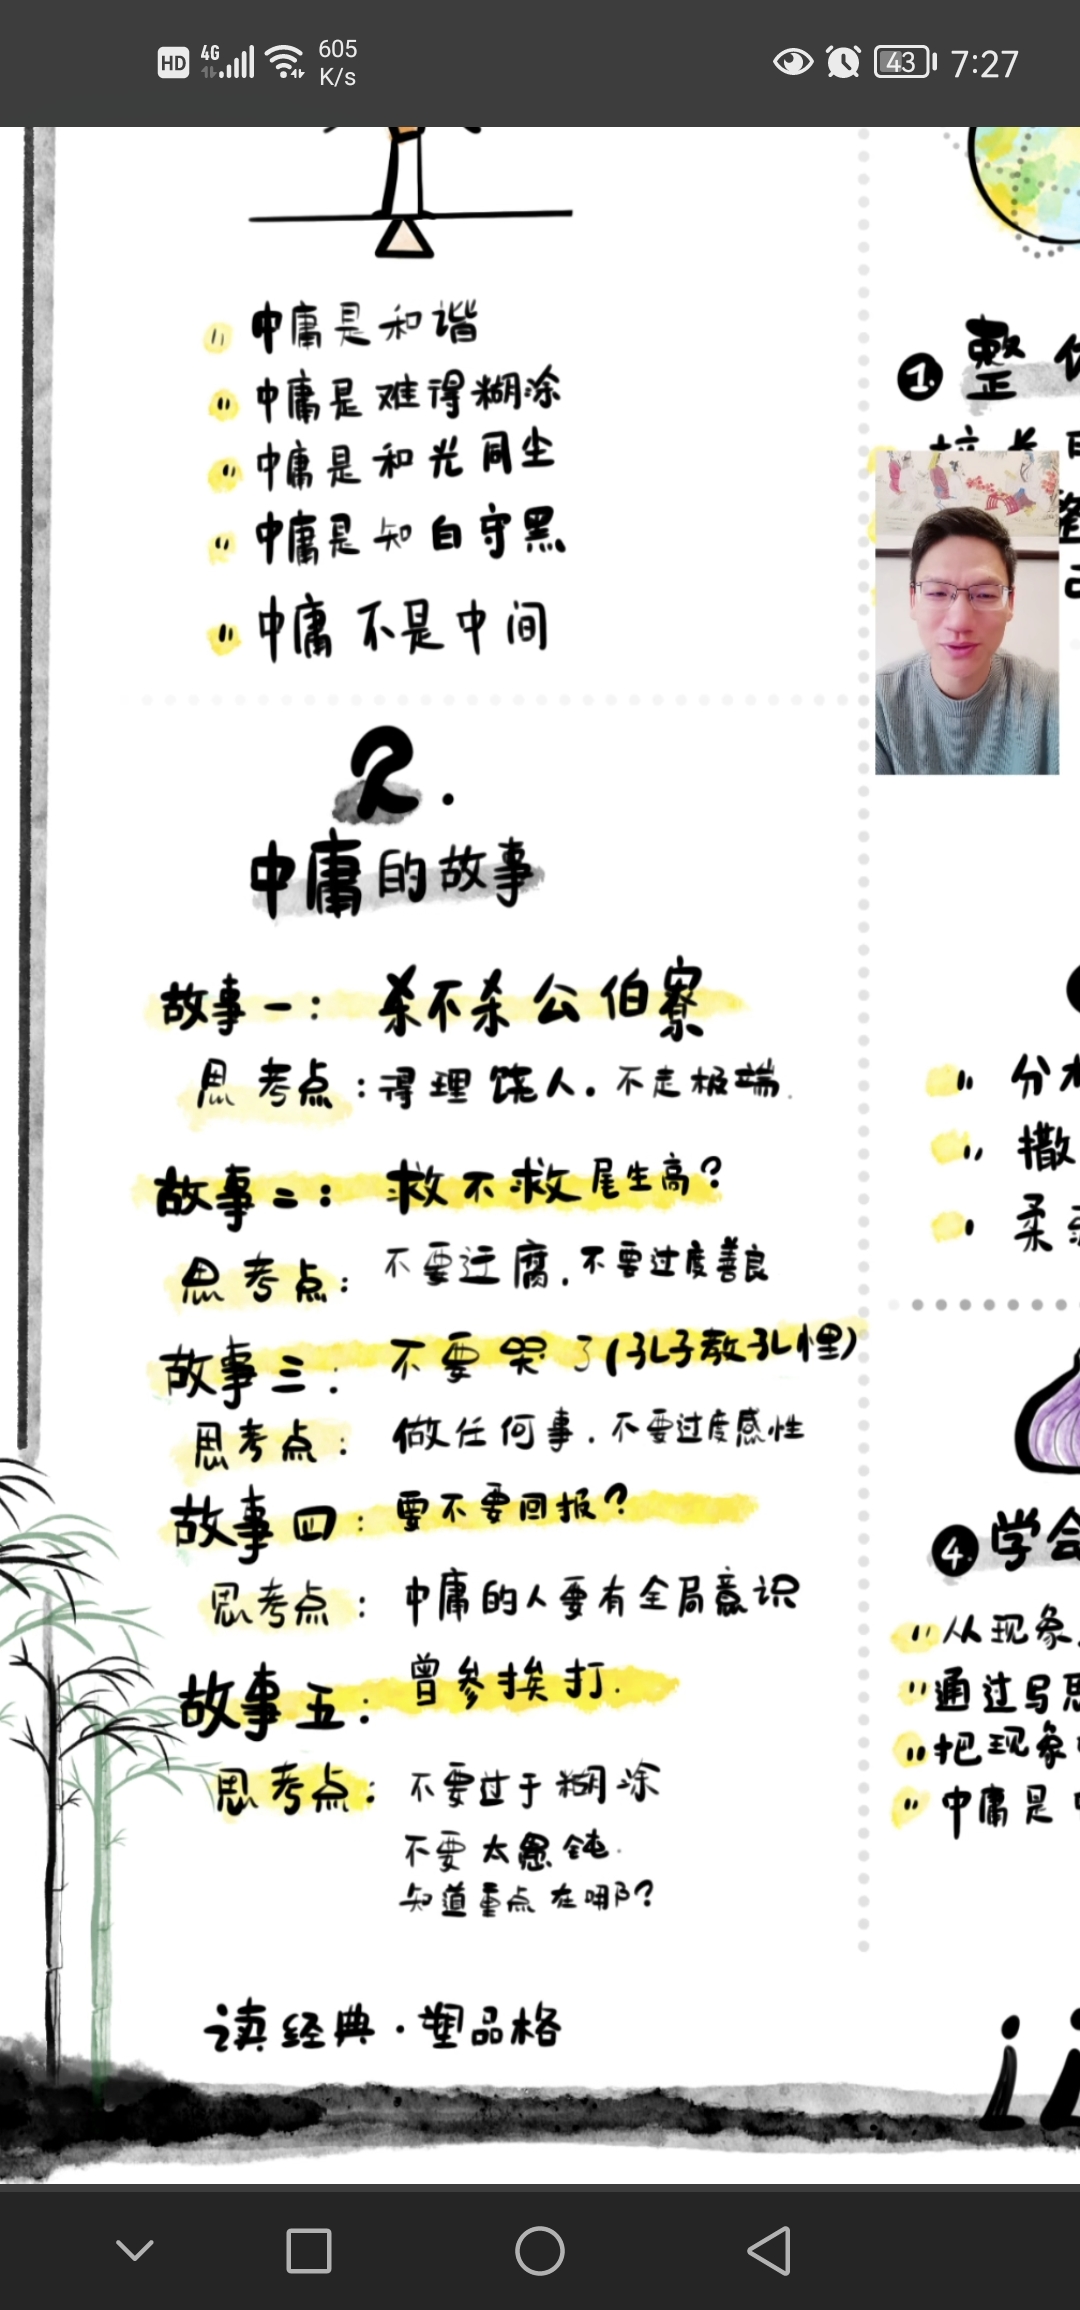 HD 4G 605 K/s 43 7:27
中庸是和谐
中庸是难得糊涂
中庸是和光同尘
中庸是知白守黑
中庸不是中间
2.
中庸的故事
故事一: 杀不杀公伯寮
思考点:得理饶人.不走极端.
故事二: 救不救尾生高?
思考点: 不要迂腐.不要过度善良
故事三: 不要哭了(孔子教孔悝)
思考点: 做任何事.不要过度感性
故事四: 要不要回报?
思考点: 中庸的人要有全局意识
故事五: 曾参挨打.
思考点: 不要过于糊涂
不要太愚钝.
知道重点在哪?
读经典·塑品格
1. 整
分
撒
柔
4. 学会
从现象
通过与思
把现象
中庸是